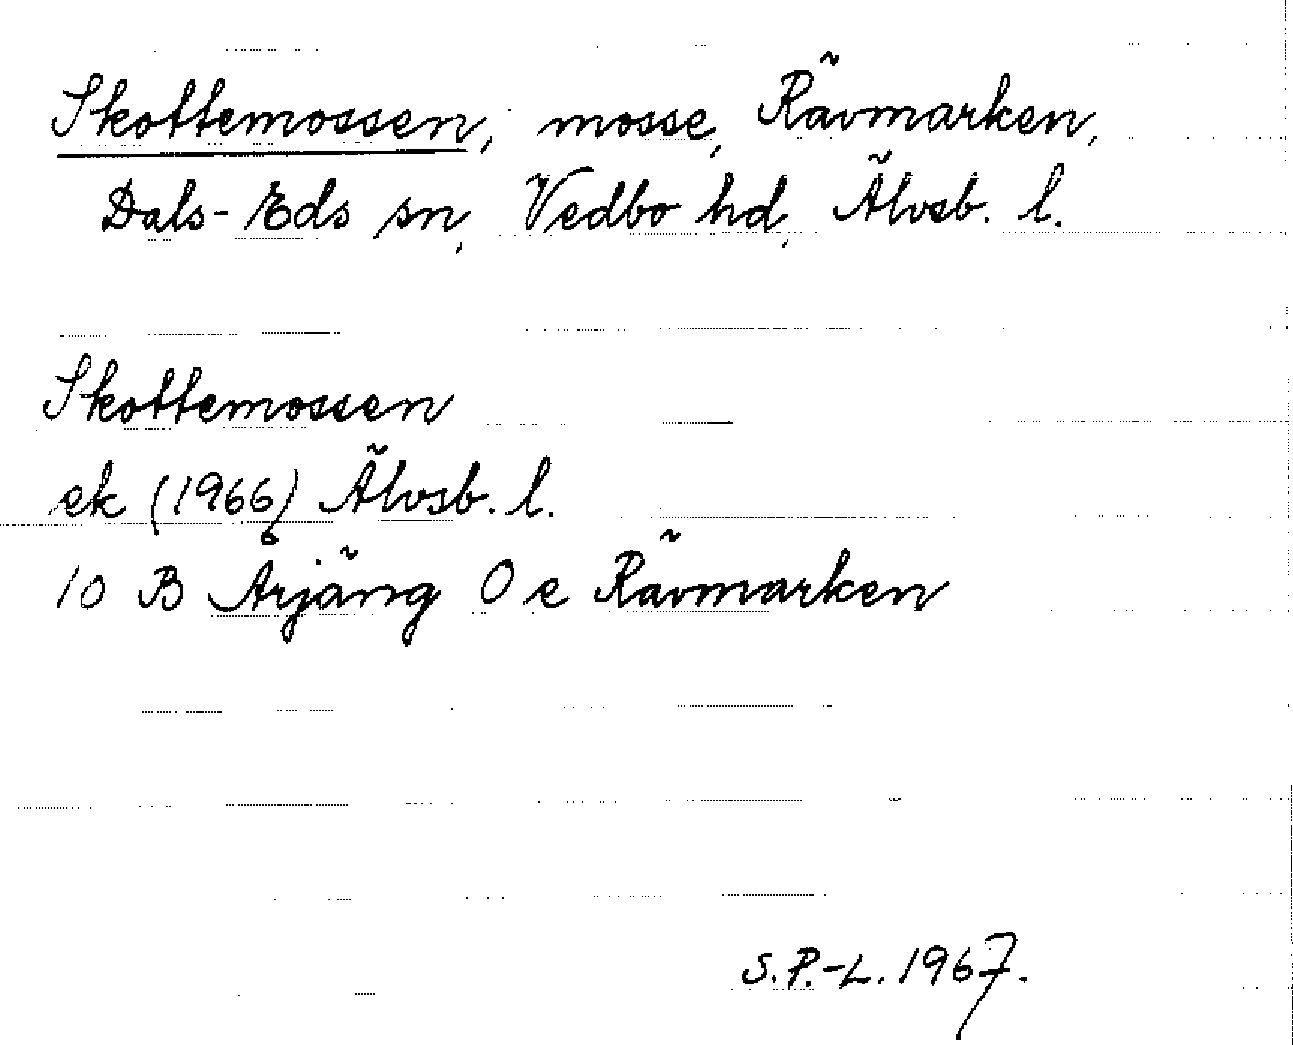 Skottemossen, mosse, Rävmarken,
Dals-Eds sn, Vedbo hd, Älvsb. l.
Skottemossen
ek (1966) Älvsb. l.
10 B Årjäng O e Rävmarken
S.P.-L. 1967.